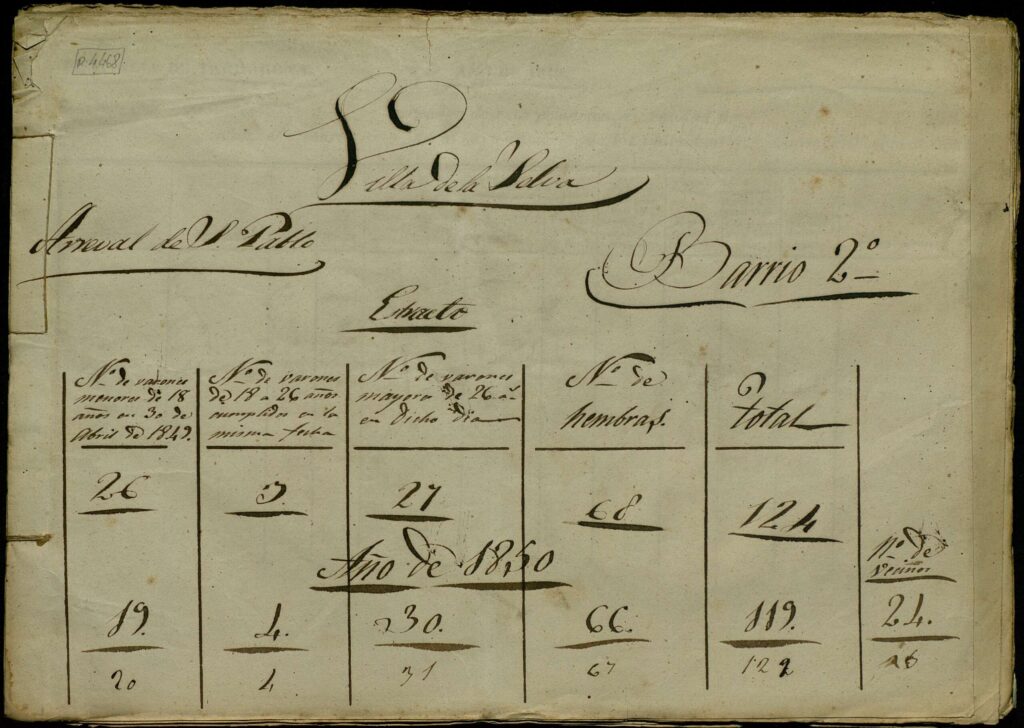 R.4468
Villa de la Selva
Arreval de S. Pablo
Barrio 2º
Nº de varones
menores de 18
años en 30 de
Abril de 1849.
Nº de varones
de 18 a 26 años
cumplidos en la
misma fecha
Nº de varones
mayores de 26 aˢ
en dicho dia
Nº de
hembras.
Total
26 3 27 68 124
Año de 1850
Nº de
vecinos
19. 4. 30. 66. 119. 24.
20 4 31 67 122